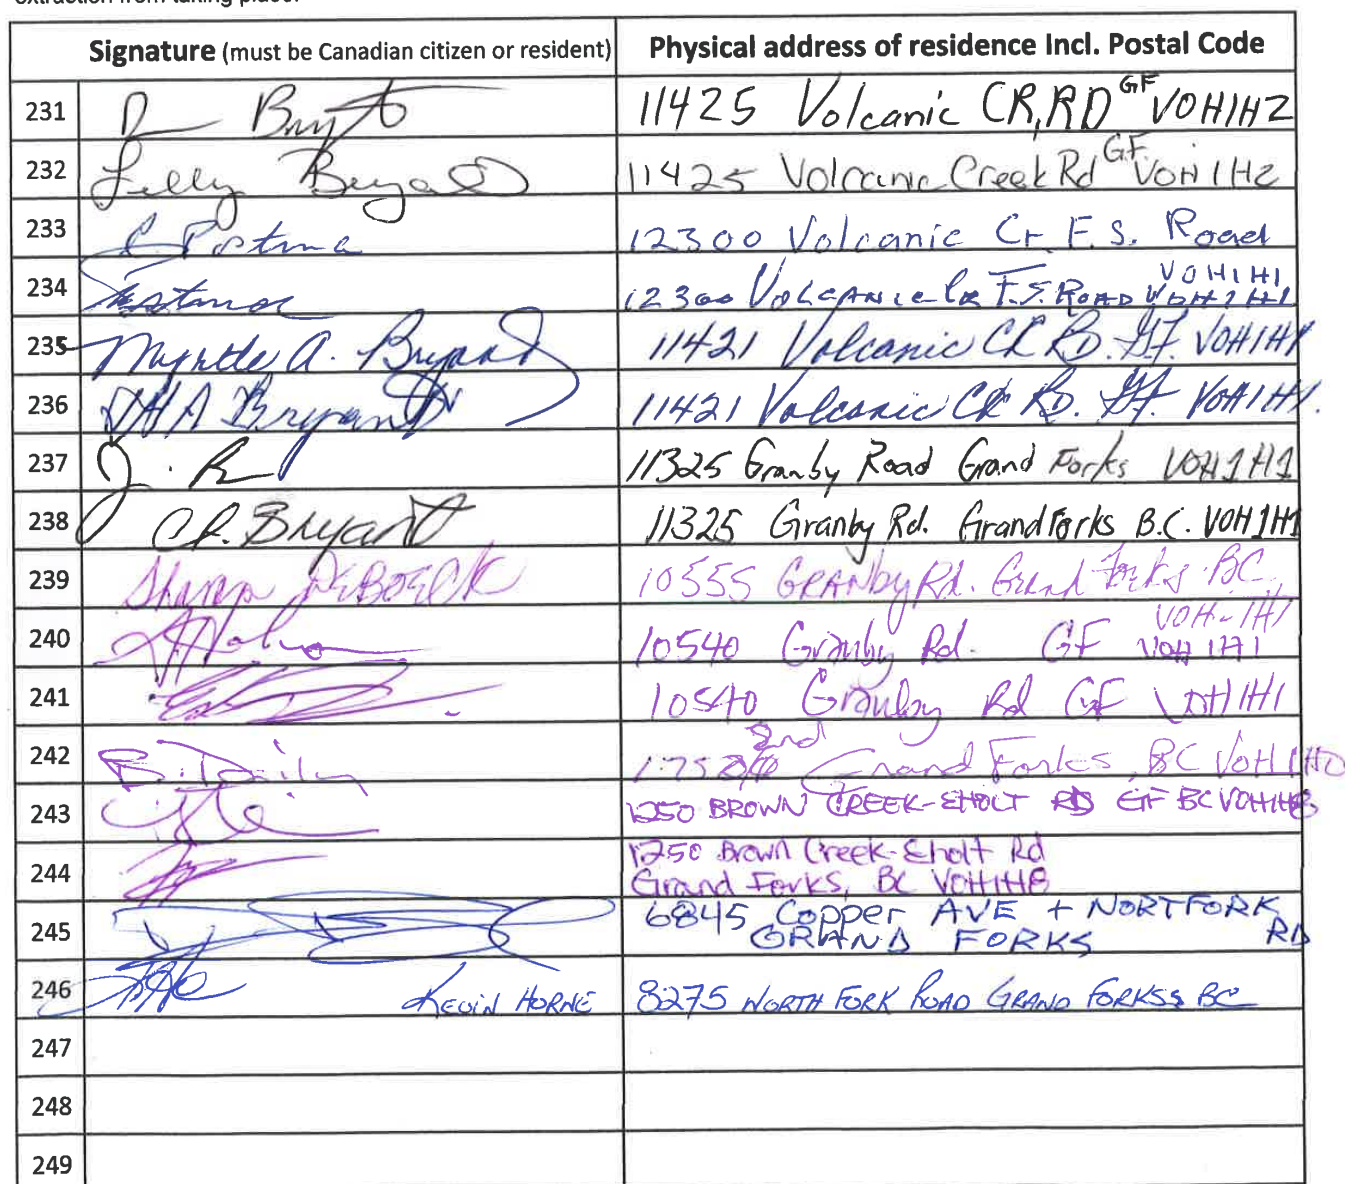 extraction from taking place.
Signature (must be Canadian citizen or resident) Physical address of residence Incl. Postal Code
231 11425 Volcanic CR, RD GF V0H1H2
232 Lilly Bryant 11425 Volcanic Creek Rd GF V0H 1H2
233 Postma 12300 Volcanic Cr F.S. Road
V0H1H1
234 Postma 12300 Volcanic Cr F.S. ROAD V0H1H1
235 Myrtle A. Bryant 11421 Volcanic CR RD. GF. V0H1H1
236 Bryant 11421 Volcanic CR RD. GF. V0H1H1.
237 11325 Granby Road Grand Forks V0H1H1
238 Bryant 11325 Granby Rd. Grand Forks B.C. V0H1H1
239 Sharon DEBOECK 10555 GRANBY Rd. Grand Forks BC,
V0H-1H1
240 10540 Granby Rd. GF V0H 1H1
241 10540 Granby Rd GF V0H1H1
2nd
242 B. Grand Forks, BC V0H1H0
243 1250 BROWN CREEK-EHOLT RD GF BC V0H1H8
1250 Brown Creek-Eholt Rd
244 Grand Forks, BC V0H1H8
6845 Copper AVE + NORTFORK
245 GRAND FORKS RD
246 KEVIN HORNE 8275 NORTH FORK ROAD GRAND FORKSS BC
247
248
249